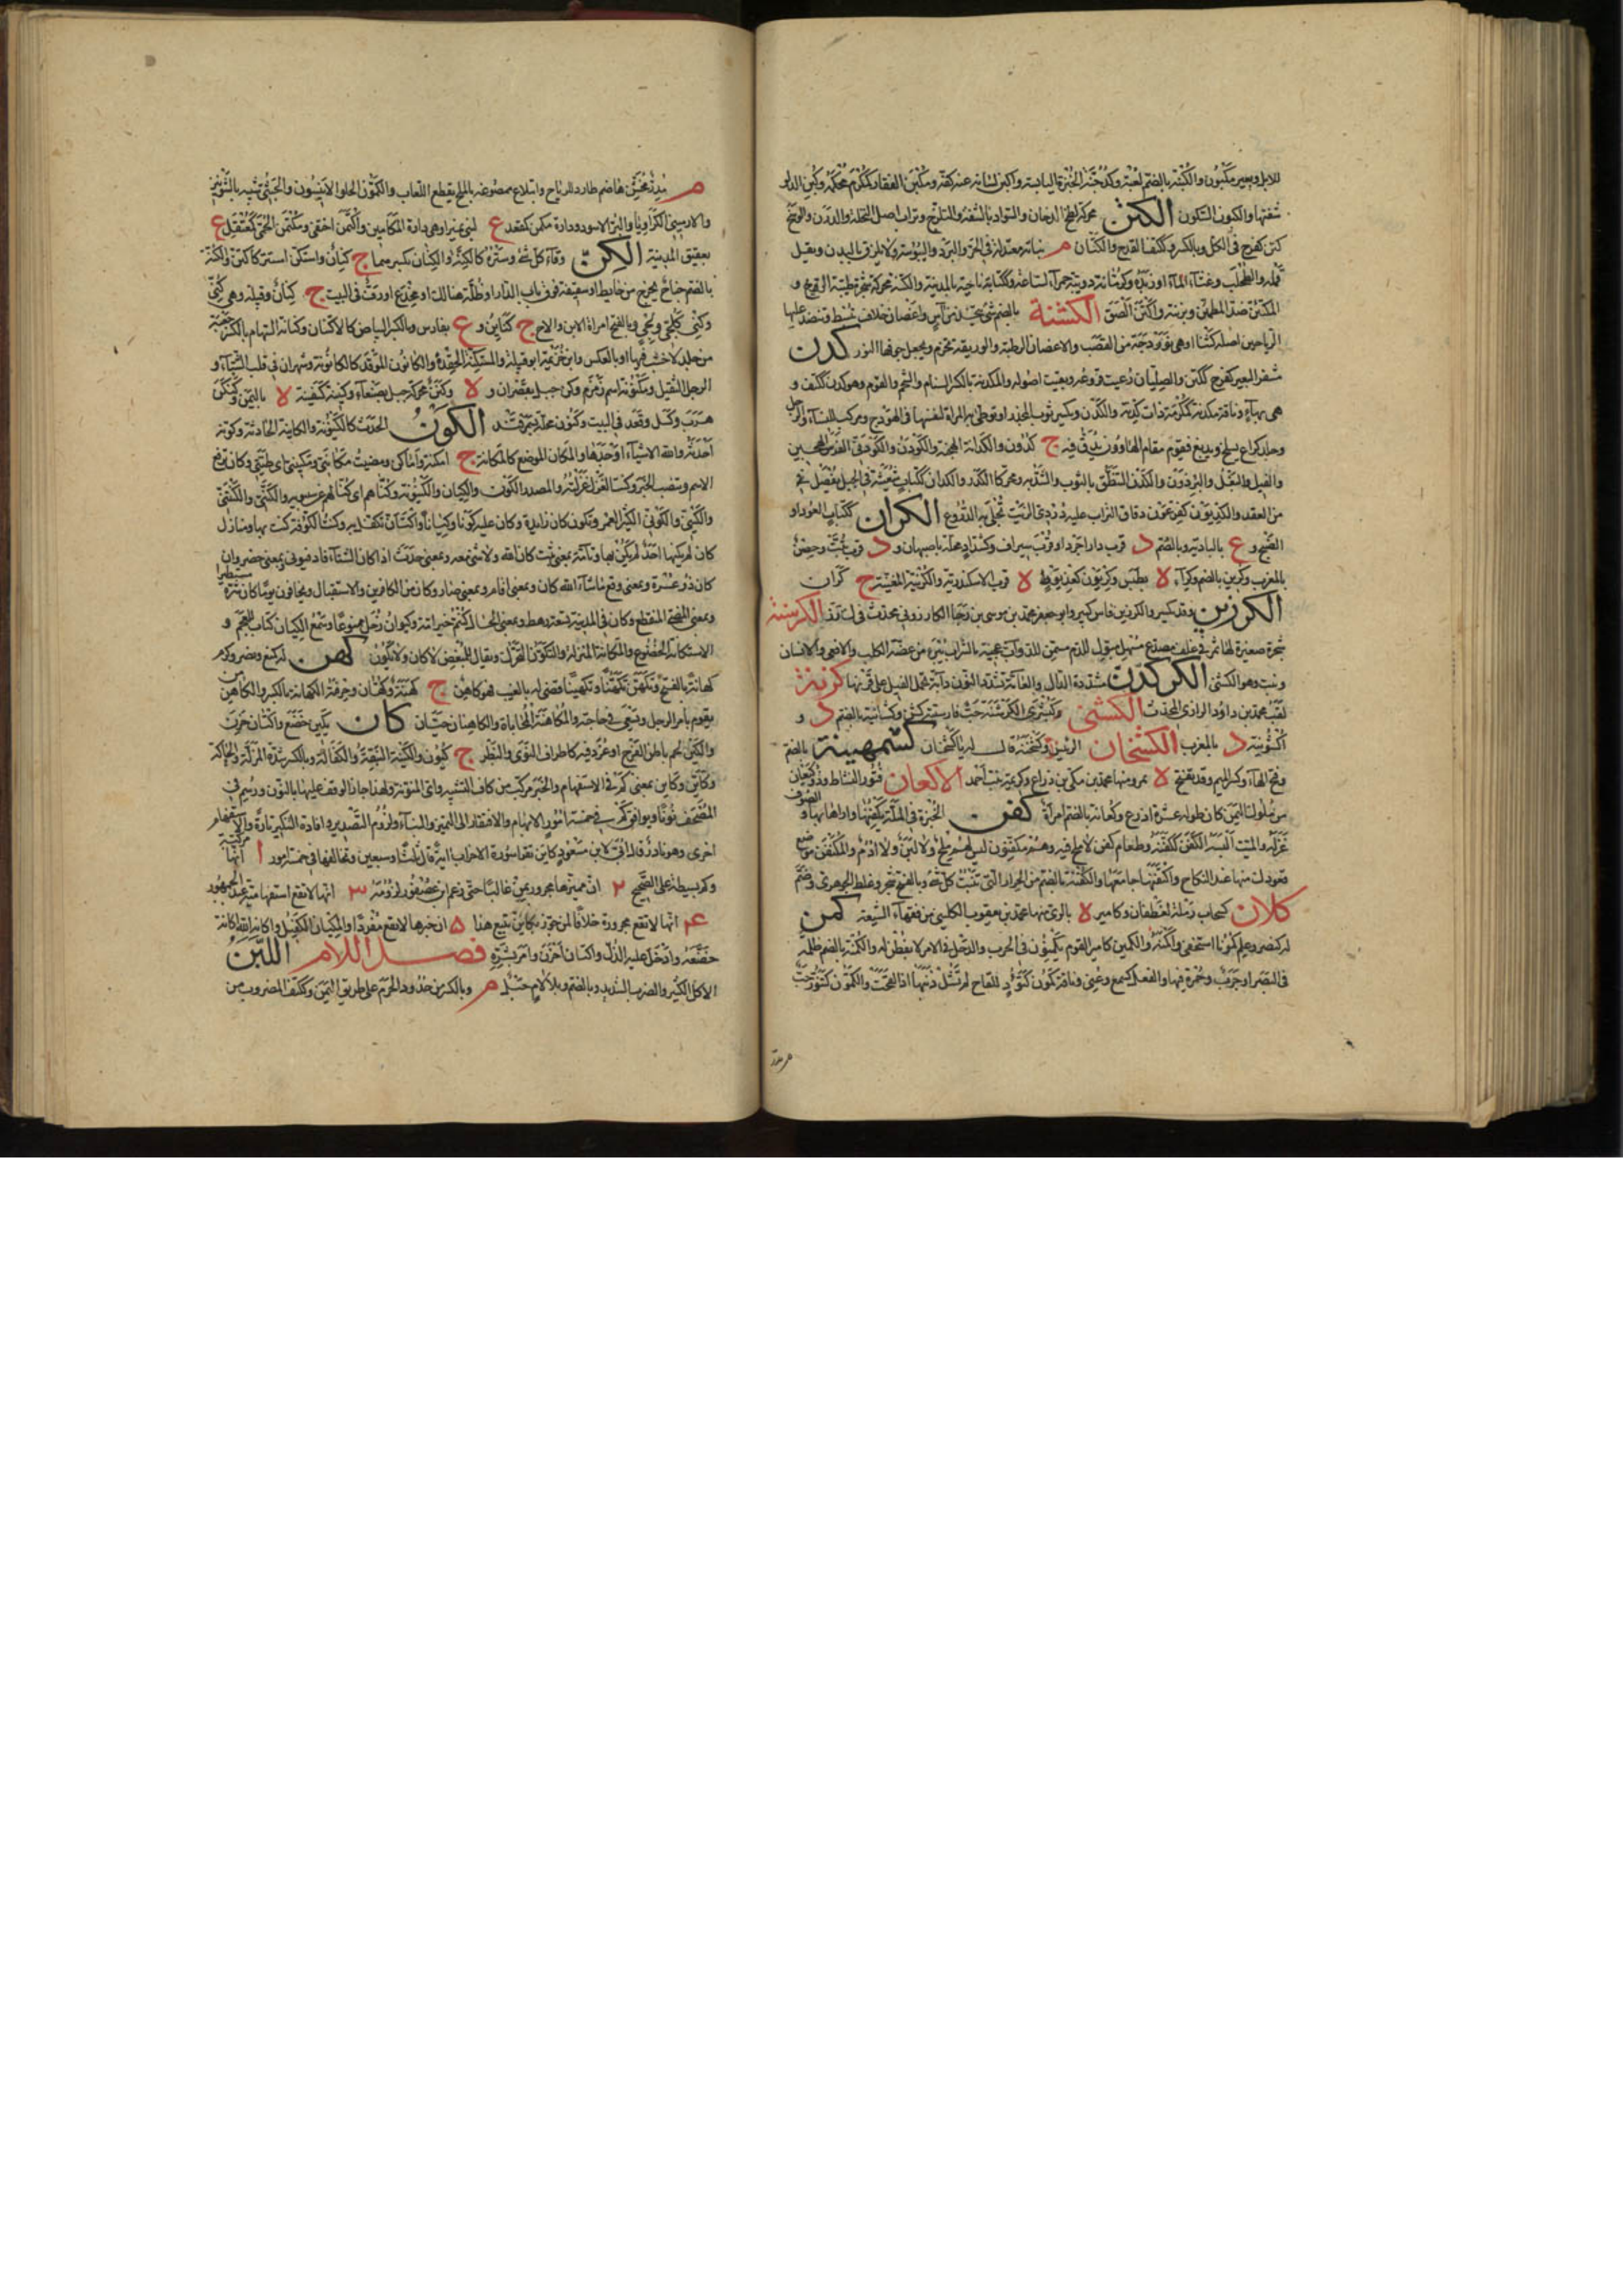 للابل وبعير مكبون والكبنة بالضم لعبة وكدجنة الخبزة اليابسة واكبن لسانه عنه كفه ومكبن الفقار ككرم محكمه وكبن الدلو
شفتها والكبون السكون الكتن محركة لطخ الدخان والسواد بالشفة والتلزج وتراب اصل النخلة والدرن والوسخ
كتن كفرح في الكل وبالكسر وككتف القدح والكتان م ثيابه معتدلة في الحر والبرد واليبوسة ولا تلزق بالبدن ويقل
قمله والطحلب وغثاء الماء او زبده وكرمانة دويبة حمراء لساعة وككتابة ناحية بالمدينة والكتنة محركة شجرة طيبة الريح و
المكتئن ضد المطمئن وبزنته واكتن الصق الكثنة بالضم شئ يتخذ من آس واغصان خلاف تبسط وتنضد عليها
الرياحين اصله كثنا او هي نوردجة من القصب والاغصان الرطبة والوريقة تحزم ويجعل جوفها النور كدن
مشفر البعير كفرح ككتن والصليان رعيت فروعه وبقيت اصوله والكدنة بالكسر السنام والشحم واللحم وهو كدن ككتف و
هي بهاء وناقة مكدنة كمكرمة ذات كدنة والكدن ويكسر ثوب للخدر او توطئ به المراة لنفسها في الهودج ومركب للنساء والرحل
وجلد كراع يسلخ ويدبغ فيقوم مقام الهاوون يدق فيه ج كدون والكدانة الهجنة والكودن والكودني الفرس الهجين
والفيل والبغل والبرذون
من العقد والكديون كفرعون دقاق التراب عليه دردي الزيت تجلى به الدروع الكران ككتاب العود او
الصنج و ع بالبادية وبالضم د قرب دارابجرد او قرب سيراف وكشداد محلة باصبهان و د قرب تبت وحصن
بالمغرب وكرين بالضم وكراء لا بطبس وكريون كعذيوط لا قرب الاسكندرية والكرينة المغنية ج كران
الكرزين وقد يكسر والكرزين فاس كبير وابو جعفر محمد بن موسى بن رجا الكارزيني محدث الكرسنة
شجرة صغيرة لها ثمر في غلف مصدع مسهل مبول للدم مسمن للدواب عجينه بالشراب يبرئ من عضة الكلب والافعى والانسان
الكركدن مشددة الدال والعامة تشدد النون دابة تحمل الفيل على قرنها كزنة
لقب محمد بن داود الرازي المحدث الكشنى وكبشرى الكرسنة حب فارسيته كشن وكشانية بالضم د و
اكشونية د بالمغرب الكشخان الرئيس وكشخنه قال له يا كشخان كشمهينة بالضم
وفتح الهاء وكسر الميم وقد يفتح لا بمرو منها محمد بن مكي بن ذراع وكريمة بنت احمد الاكعان فتور النشاط وذو كعان
من ملوك اليمن كان طوله عشرة اذرع وكعانة بالضم امراة كفن الخبزة في الملة يكفنها واراها بها و الصوف
غزله والميت البسه الكفن ككفنه وطعام كفن لا ملح فيه وهم مكفنون ليس لهم ملح ولا لبن ولا ادم والمكفن موضع
قعودك منها عند النكاح واكتفنها جامعها والكفنة بالضم من الحرار التي تنبت كل شئ وبالفتح شجر وغلط الجوهري وضم
كلان كسحاب رملة لغطفان وكامير لا بالري منها محمد بن يعقوب الكليني من فقهاء الشيعة كمن
له كنصر وعلم كمونا استخفى واكمنه والكمين كامير القوم يكمنون في الحرب والدخل في الامر لا يفطن له والكمنة بالضم ظلمة
في البصر او جرب وحمرة فيها والفعل كسمع وعني وناقة كمون كتوم للقاح لم تشل ذنبها اذا لقحت والكمون كتنور حب
م مدر
م مدر مخش هاضم طارد للرياح وابتلاع ممضوغه بالملح يقطع اللعاب والكمون الحلو الانيسون والحبشي شبيه بالشونيز
والارمني الكراويا والبري الاسود ودارة مكمن كمقعد ع لبني نمير او هي دارة المكامين واكتمن اختفى ومكتمن الحمى كمعتقل ع
بعقيق المدينة الكن وقاء كل شئ وستره كالكنة والكنان بكسرهما ج كنان واستكن استتر كاكتن والكنة
بالضم جناح يخرج من حايط او سقيفة فوق باب الدار او ظلة هنالك او مخدع او رف في البيت ج كنان وقبيلة وهي كني
وكني كلجي ولجي وبالفتح امراة الابن والاخ ج كنائن و ع بفارس وبالكسر البياض كالاكتنان وكنانة السهام بالكسر جعبة
من جلد لا خشب فيها او بالعكس وابن خزيمة ابو قبيلة والمستكنة الحقد والكانون الموقد كالكانونة وشهران في قلب الشتاء و
الرجل الثقيل ومكنونة اسم زمزم وكن جبل بقصران و لا وكنن محركة جبل بصنعاء وكنينة كسفينة لا باليمن وكنكن
هرب وكسل وقعد في البيت وكنون محلة بسمرقند الكون الحدث كالكينونة والكاينة الحادثة وكونه
احدثه والله الاشياء اوجدها والمكان الموضع كالمكانة ج امكنة واماكن ومضيت مكانتي ومكينتي اي طيتي وكان ترفع
الاسم وتنصب الخبر وكنت الغزل غزلته والمصدر الكون والكيان والكينونة وكناهم اي كنا لهم عن سيبويه والكنتي والكنتني
والكوني الكبير العمر وتكون كان زايدة وكان عليه كونا وكيانا واكتان تكفل به وكنت الكوفة كنت بها ومنازل
كان لم يكنها احد لم يكن بها وتامة بمعنى ثبت كان الله ولا شئ معه وبمعنى حدث اذا كان الشتاء فادفيوني وبمعنى حضر وان
كان ذو عسرة وبمعنى وقع ما شاء الله كان وبمعنى اقام وبمعنى صار وكان من الكافرين والاستقبال ويخافون يوما كان شره مستطيرا
وبمعنى المضي المنقطع وكان في المدينة تسعة رهط وبمعنى الحال كنتم خير امة وكيوان زحل ممنوعا وسمع الكيان كتاب للعجم و
الاستكانة الخضوع والمكانة المنزلة والتكون التحرك ويقال للبغيض لا كان ولا تكون كهن له كمنع ونصر وكرم
كهانة بالفتح وتكهن تكهنا وتكهينا قضى له بالغيب فهو كاهن ج كهنة وكهان وحرفته الكهانة بالكسر والكاهن من
يقوم بامر الرجل ويسعى في حاجته والمكاهنة المحاباة والكاهنان حيان كان يكين خضع واكتان حزن
والكين لحم باطن الفرج او غدد فيه كاطراف النوى والبظر ج كيون والكينة النبقة والكفالة وبالكسر شدة المزلة والحالة
وكاين وكاين بمعنى كم في الاستفهام والخبر مركب من كاف التشبيه واي المنونة ولهذا جاز الوقف عليها بالنون ورسم في
المصحف نونا ويوافق كم في خمسة امور الابهام والافتقار الى المميز والبناء ولزوم التصدير وافادة التكثير تارة والاستفهام
اخرى وهو نادر قال ابي لابن مسعود كاين تقرا سورة الاحزاب اية قال ثلثا وسبعين وتخالفها في خمسة امور ١ انها مركبة
وكم بسيطة على الصحيح ٢ ان مميزها مجرور بمن غالبا حتى زعم ابن عصفور لزومه ٣ انها لا تقع استفهامية عند الجمهور
٤ انها لا تقع مجرورة خلافا لمن جوز بكاين تبيع هذا ٥ ان خبرها لا يقع مفردا والمكتان الكفيل واكانه الله اكانة
خضعه وادخل عليه الذل واكتان احزن وامر بسره فصل اللام اللبن
الاكل الكثير والضرب الشديد وبالضم وبلا لام جبل م وبالكسر من حدود الحرم على طريق اليمن وككتف المضروب من